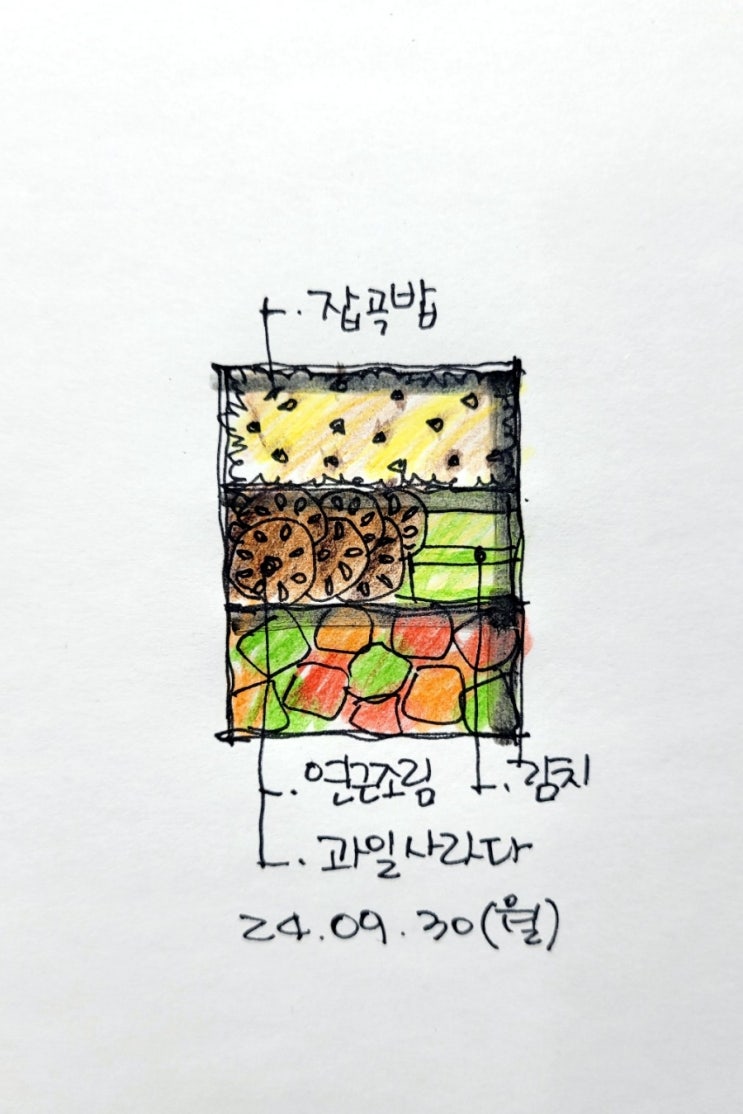 잡곡밥
연근조림 김치
과일사라다
24.09.30(월)